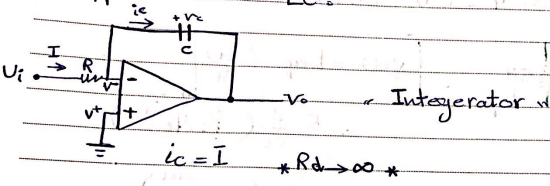 ic
+ Vc
C
I
R
Ui
V-
-
V+
+
Vo
" Integerator "
ic = I
* Rd → ∞ *